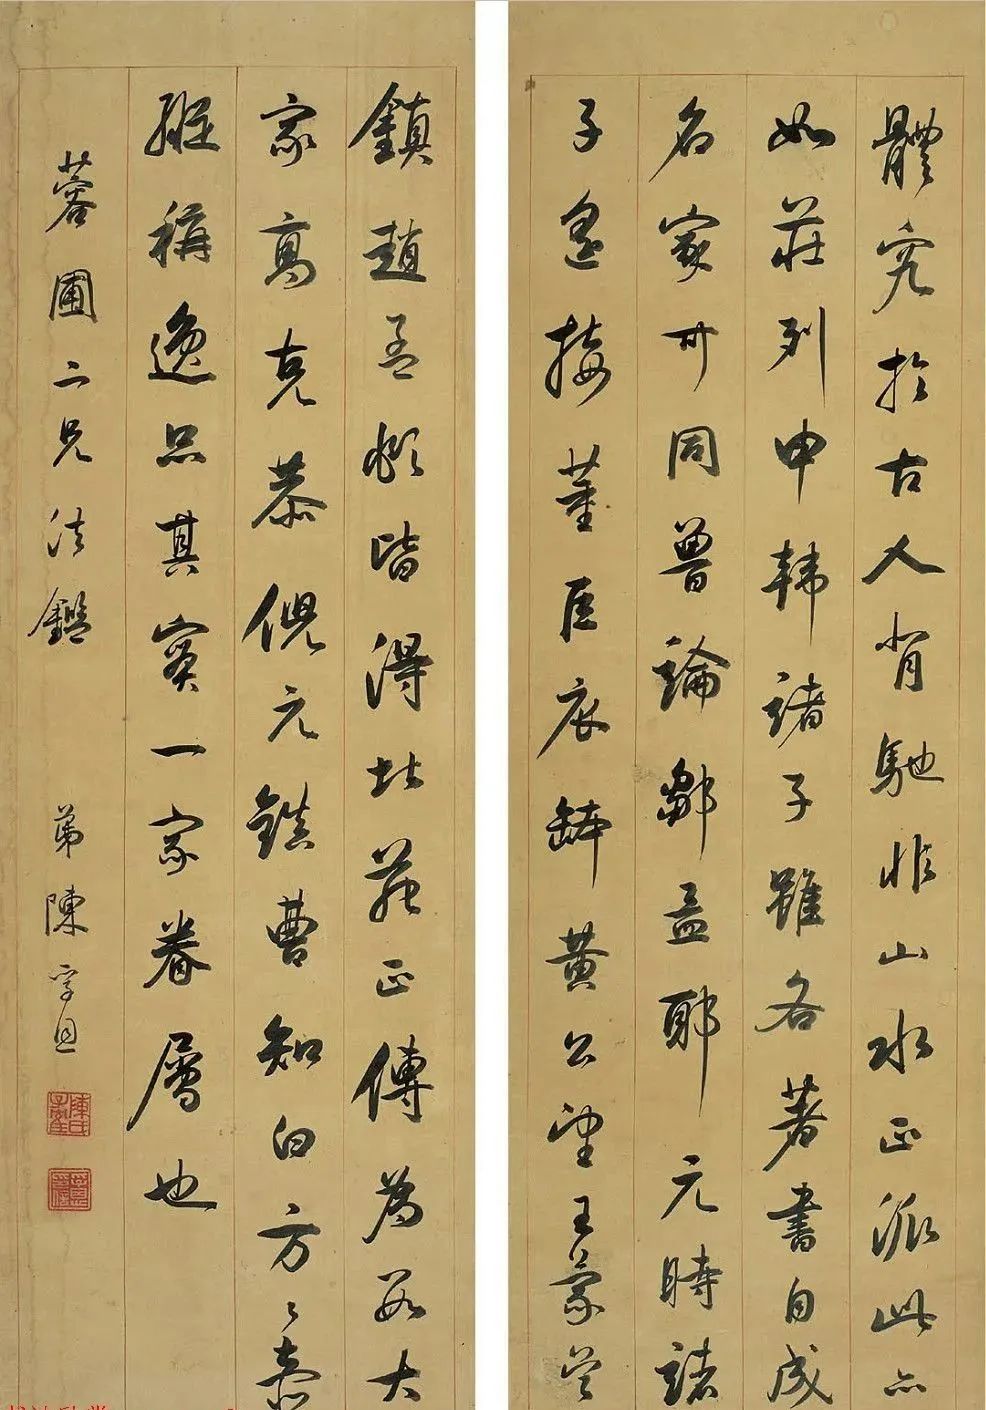 體究於古人背馳非山水正派此亦
如莊列申韓諸子雖各著書自成
名家可同魯論鄒孟耶元時諸
子遙接董巨衣鉢黃公望王蒙吳
鎮趙孟頫皆得北苑正傳為大
家高克恭倪元鎮曹知白方〻壺
縱稱逸品其實一家眷屬也
蓉圃二兄法鑑
弟陳孚恩